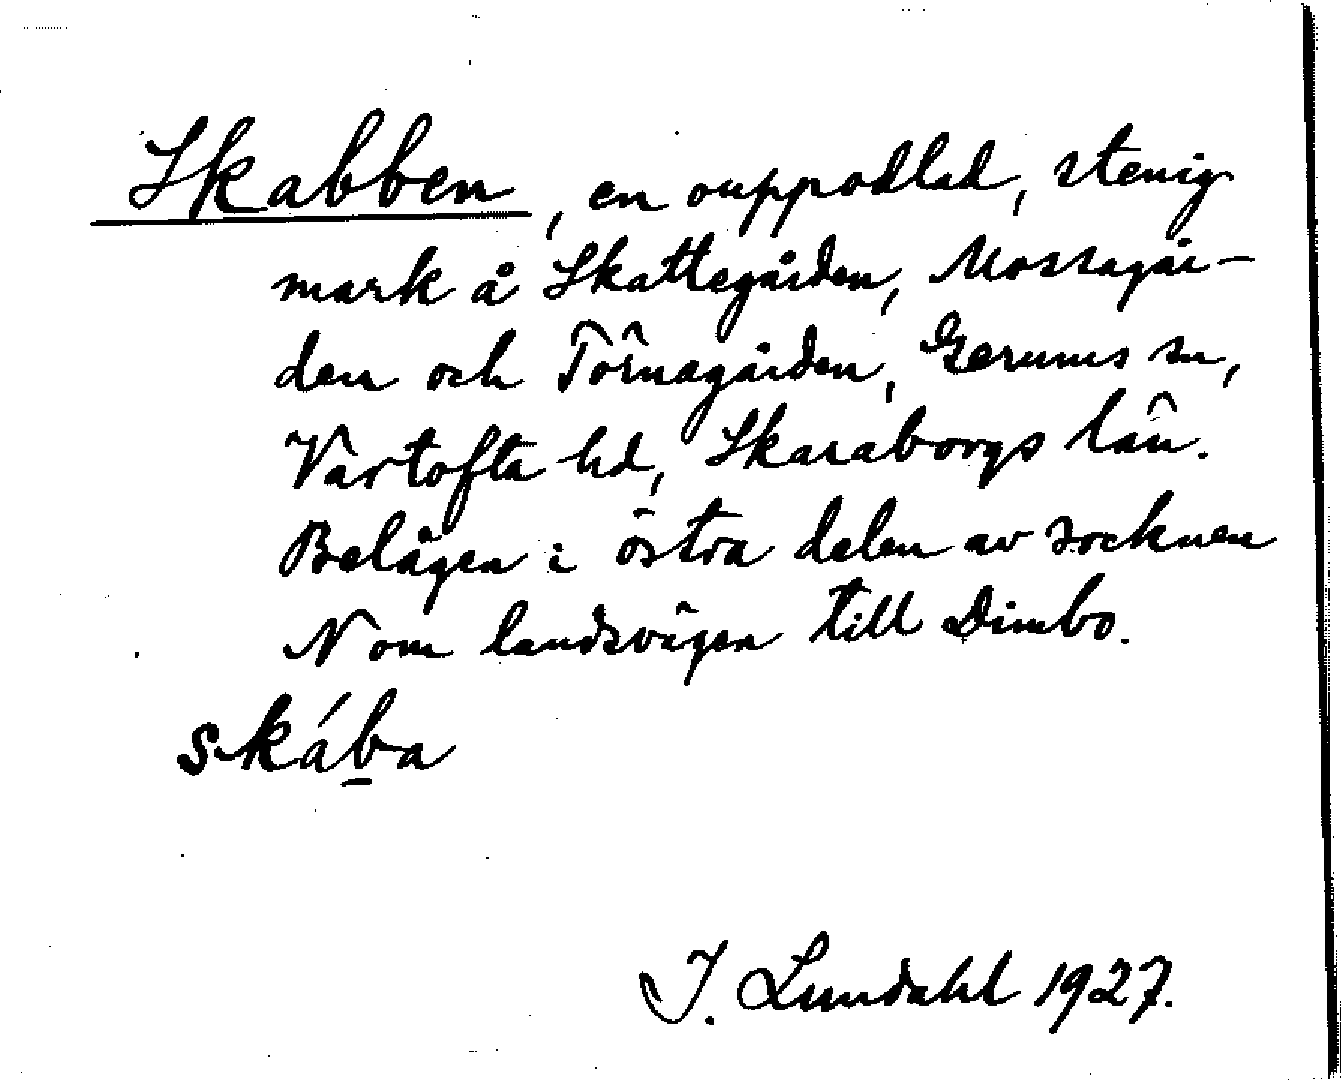 Skabben, en ouppodlad, stenig
mark å Skattegården, Mossagår-
den och Törnagården, Gerums sn,
Vartofta hd, Skaraborgs län.
Belägen i östra delen av socknen
N om landsvägen till Dimbo.
skába
J. Lundahl 1927.